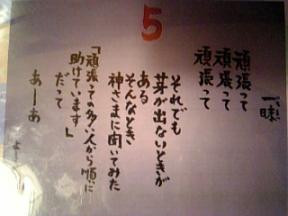 5
一喋
頑張って
頑張って
頑張って
それでも
芽が出ないときが
ある
そんなとき
神さまに聞いてみた
「頑張っての多い人から順に
助けています」
だって
あーあ